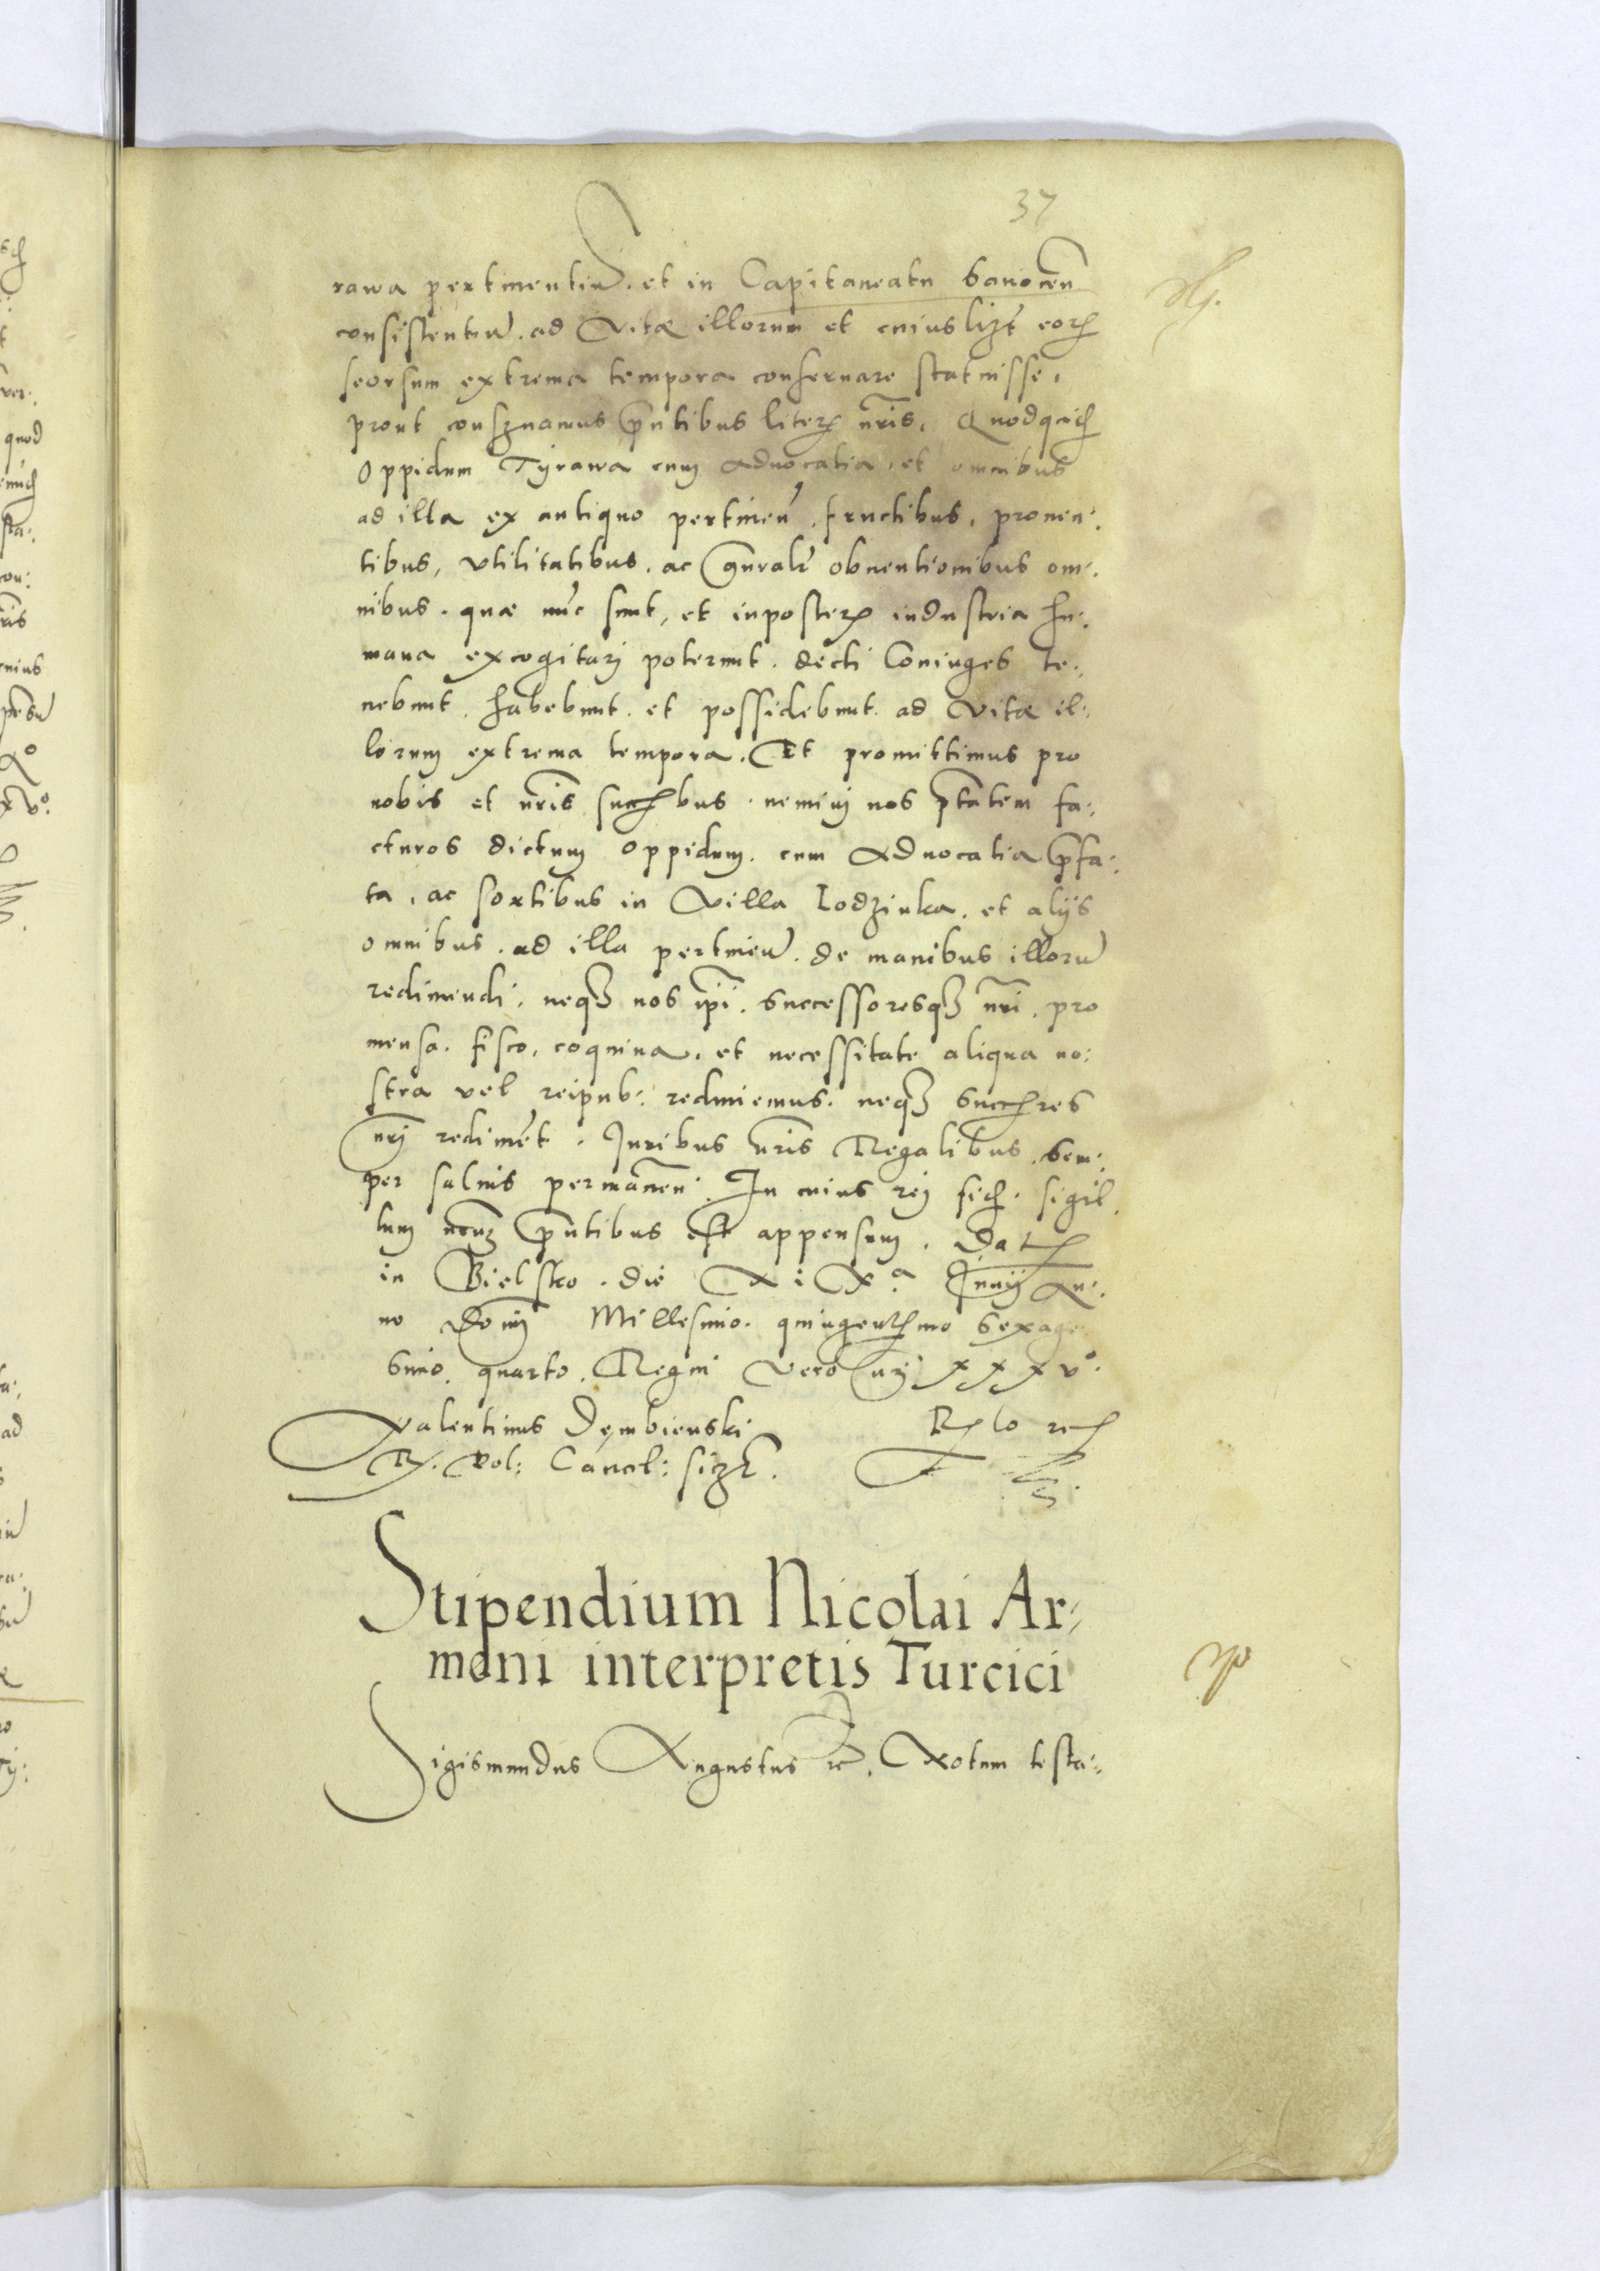 37
rawa pertinentiū. et in Capitaneatu Sanocen̄
consistentiū. ad vitæ illorum et cuiuslib̄t eorꝫ
seorsum extrema tempora conseruare statuisse,
prout conseruamus p̄ntibus literꝫ nr̄is. Quodquidē
Oppidum Tyrawa cum Aduocatia, et omnibus
ad illa ex antiquo pertineñ. fructibus, prouen:
tibus, vtilitatibus, ac gn̄ralr̄ obuentionibus om:
nibus. quæ nūc sunt, et inposterꝫ industria hu:
mana excogitarj poterunt. dicti Coniuges te:
nebunt. habebunt. et possidebunt. ad vitæ il:
lorum extrema tempora. Et promittimus pro
nobis et nr̄is succꝫbus. neminj nos p̄tatem fa:
cturos dictum oppidum. cum Aduocatia p̄fa:
ta, ac sortibus in Villa Lodzinka. et alijs
omnibus. ad illa pertineñ. de manibus illorū
redimendi. neqꝫ nos ip̄i. successoresqꝫ nr̄i. pro
mensa. fisco, coquina, et necessitate aliqua no:
stra vel reipub: redimemus. neqꝫ succꝫres
nr̄j redimēt. Juribus nr̄is Regalibus. sem:
per saluis permanen̄. In cuius rej fidē. sigil
lum nr̄um p̄ntibus est appensum. Datꝫ
in Bielsko. die XiXᵃ Junij An:
no Domj̄ Millesimo. quingentꝫmo sexage
simo. quarto. Regni vero nr̄j XXXVº.
Valentinus Dembienski
R. Pol: Cancl: sszt.
Stipendium Nicolai Ar:
meni interpretis Turcici
Sigismundus Augustus ꝛc. Notum testa: